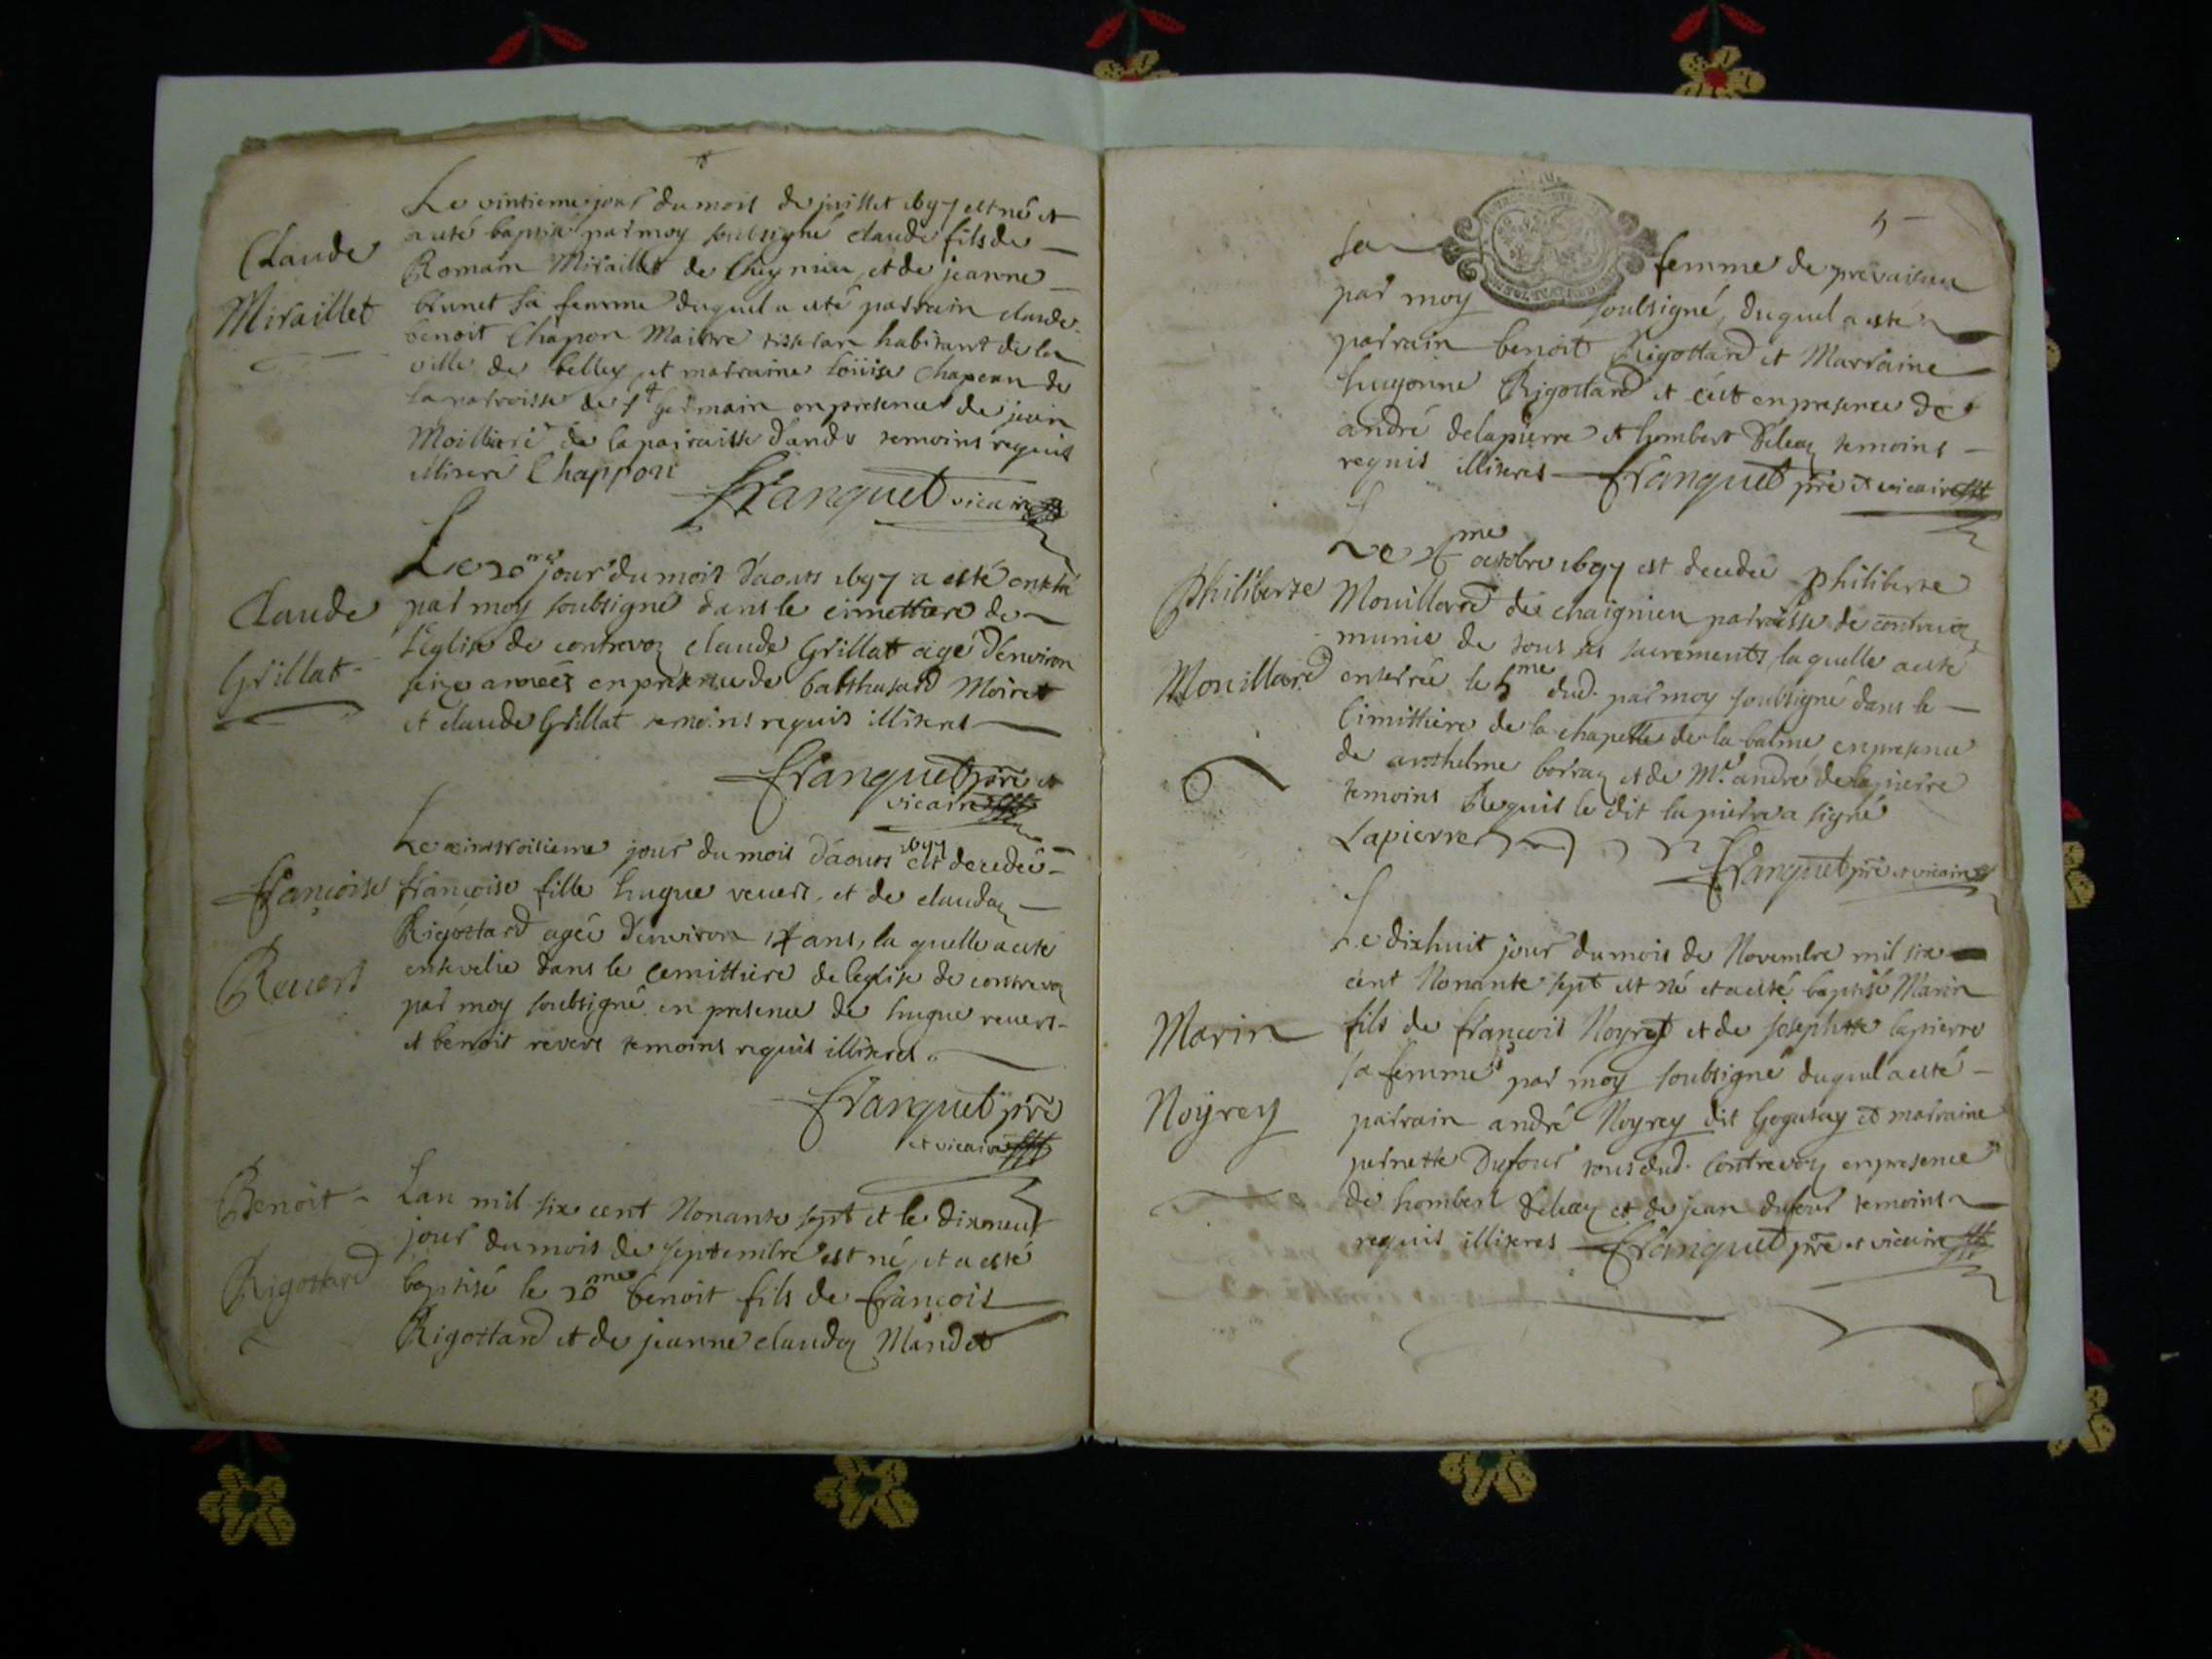 Claude
Miraillet
Le vintieme jour du mois de juillet 1697 est né et
a esté baptisé par moy soubsigné claude fils de
Romain Miraillet de Cheynieu, et de jeanne
brunet sa femme duquel a esté parrain claude
benoit Chapon Maistre tisseran habitant de la
ville de belley et marraine loüise Chapeau de
la parroisse de st germain en presence de jean
de la pairaisse d'ands temoins requis
illiteré Chappon
Franquet vicaire
Claude
Grillat
Le 20me jour du mois d'aoust 1697 a esté enterré
par moy soubsigné dans le cimettiere de
l'eglise de contrevoz claude Grillat agé d'environ
seize années en presence de balthasard Moiret
et claude Grillat temoins requis illiteres
Franquet pre et
vicaire
Françoise
Revers
Le vintroisieme jour du mois d'aoust 1697 est decedeé
françoise fille hugue revers, et de clauda
Rigottard ageé d'environ 14 ans, la quelle a esté
ensevelie dans le cemittiere de leglise de contrevoz
par moy soubsigné en presence de hugue revers
et benoit revers temoins requis illiteres
Franquet pre
et vicaire
Benoit
Rigottard
Lan mil six cent Nonante sept et le dixneuf
jour du mois de septembre est né, et a esté
baptisé le 20me benoit fils de françois
Rigottard et de jeanne clauda Mandet
5
sa femme de prevaisieu
par moy soubsigné, duquel a esté
parrain benoit Rigottard et Marraine
hugonne Rigottard et c'est en presence de
andré delapierre et hombert temoins
requis illiteres Franquet pre et vicaire
Philiberte
Mouillard
Le 4me octobre 1697 est decedeé philiberte
Mouillard de chaignieu parroisse de contrevoz
munie de tous ses sacrements, laquelle a esté
enterreé le 5me dud. par moy soubsigné dans le
cimittiere de la chapelle de la balme en presence
de anthelme borraz et de Me andré de lapierre
temoins Requis le dit lapierre a signé
Lapierre
Franquet pre et vicaire
Marin
Noÿrey
Le dixhuit jour du mois de Novembre mil six
cent Nonante sept est né et a esté baptisé Marin
fils de françois Noyrey et de josephte lapierre
sa femme par moy soubsigné duquel a esté
parrain andré Noyrey dit et marraine
pernette Dufour tous dud. Contrevoz en presence
de hombert et de jean dufour temoins
requis illiteres Franquet pre et vicaire